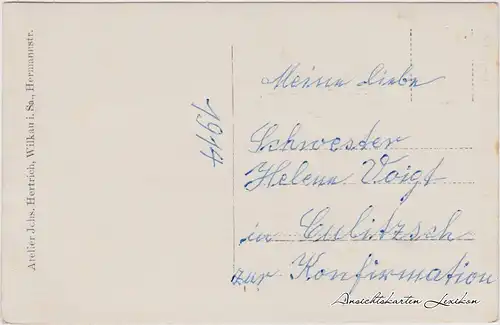 Atelier Johs. Hertrich, Wilkau i. Sa., Hermannstr.
1944
Meine liebe
Schwester
Helene Voigt
in Culitzsch
zur Konfirmation
Ansichtskarten Lexikon